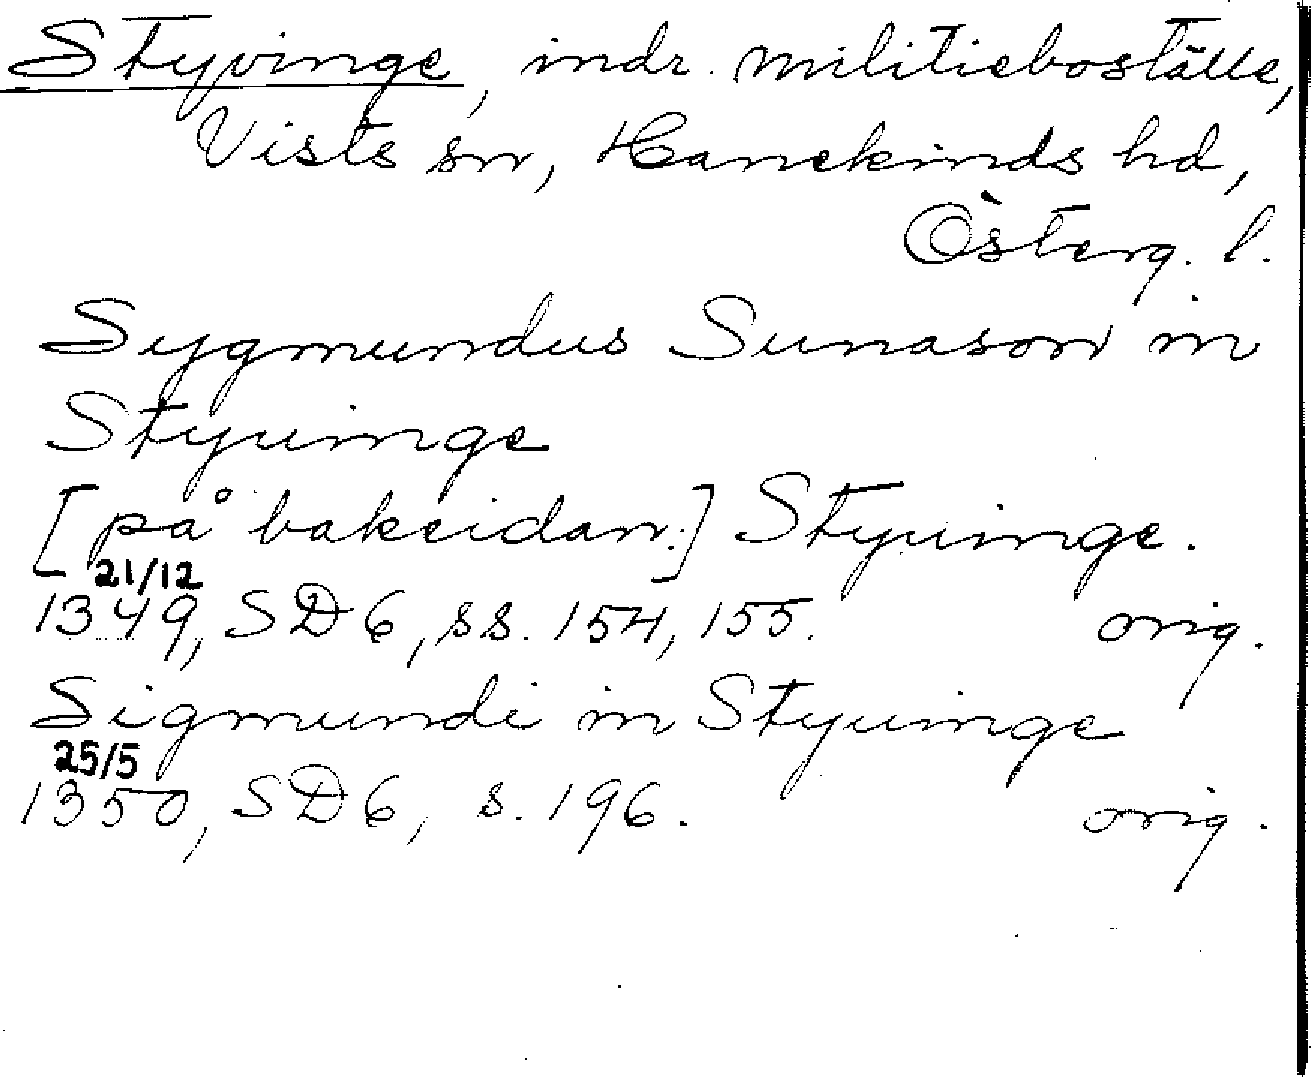 Styvinge, indr. militieboställe,
Vists sn, Hanekinds hd,
Österg. l.
Sygmundus Sunason in
Styuinge
[på baksidan:] Styuinge.
21/12
1349, SD 6, ss. 154, 155. orig.
Sigmundi in Styuinge
25/5
1350, SD 6, s. 196. orig.